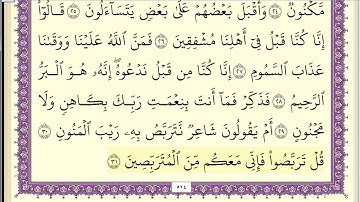 مَّكْنُونٌ ۝٢٤ وَأَقْبَلَ بَعْضُهُمْ عَلَىٰ بَعْضٍ يَتَسَآءَلُونَ ۝٢٥ قَالُوٓا۟
إِنَّا كُنَّا قَبْلُ فِىٓ أَهْلِنَا مُشْفِقِينَ ۝٢٦ فَمَنَّ ٱللَّهُ عَلَيْنَا وَوَقَىٰنَا
عَذَابَ ٱلسَّمُومِ ۝٢٧ إِنَّا كُنَّا مِن قَبْلُ نَدْعُوهُ إِنَّهُۥ هُوَ ٱلْبَرُّ
ٱلرَّحِيمُ ۝٢٨ فَذَكِّرْ فَمَآ أَنتَ بِنِعْمَتِ رَبِّكَ بِكَاهِنٍ وَلَا
مَجْنُونٍ ۝٢٩ أَمْ يَقُولُونَ شَاعِرٌ نَّتَرَبَّصُ بِهِۦ رَيْبَ ٱلْمَنُونِ ۝٣٠
قُلْ تَرَبَّصُوا۟ فَإِنِّى مَعَكُم مِّنَ ٱلْمُتَرَبِّصِينَ ۝٣١
٥٢٤